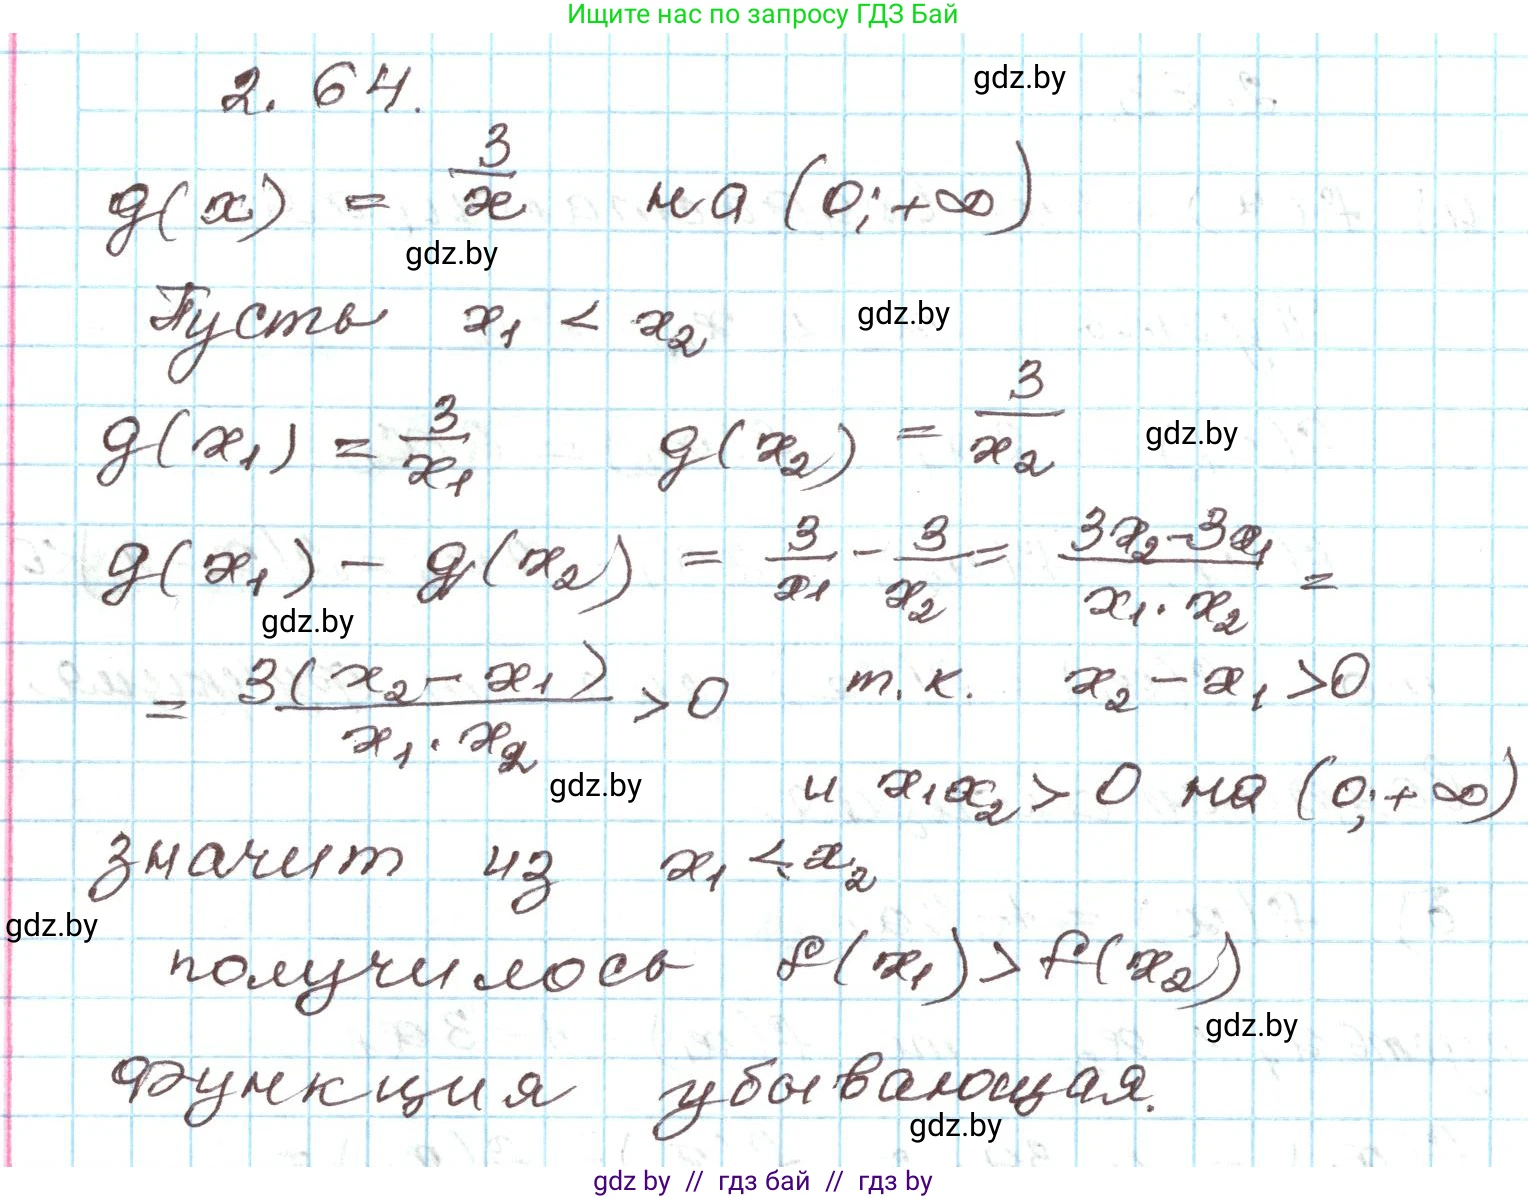 Ищите нас по запросу ГДЗ Бай
2.64.
gdz.by
g(x) = 3/x на (0; +∞)
gdz.by
Пусть x₁ < x₂
gdz.by
g(x₁) = 3/x₁ g(x₂) = 3/x₂
gdz.by
g(x₁) - g(x₂) = 3/x₁ - 3/x₂ = (3x₂-3x₁)/(x₁·x₂) =
gdz.by
= 3(x₂-x₁)/(x₁·x₂) > 0 т.к. x₂ - x₁ > 0
gdz.by
и x₁x₂ > 0 на (0; +∞)
значит из x₁ < x₂
gdz.by
получилось f(x₁) > f(x₂)
gdz.by
Функция убывающая.
gdz.by
gdz by // гдз бай // гдз by